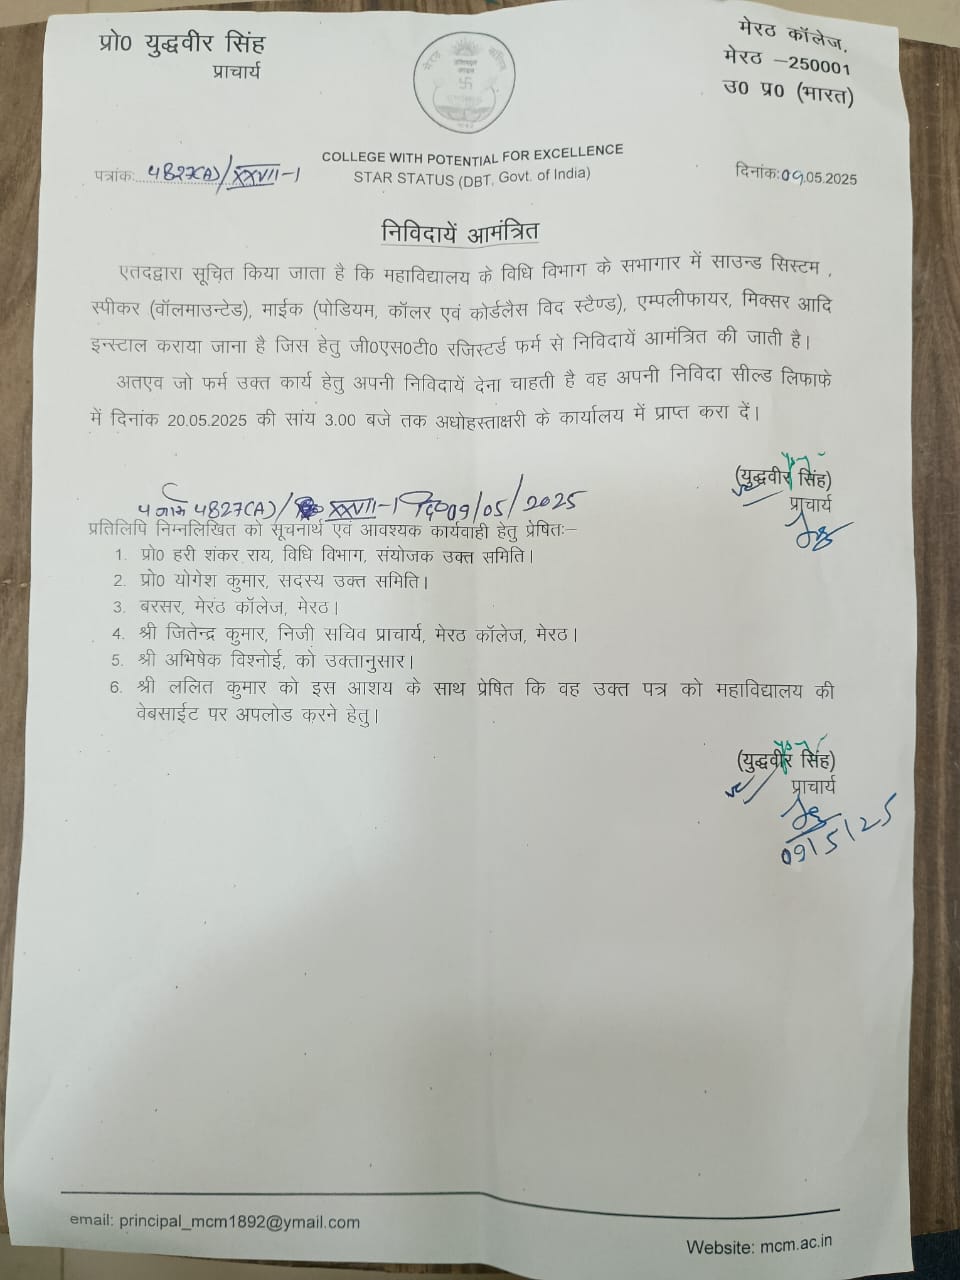 प्रो0 युद्धवीर सिंह
प्राचार्य
मेरठ कॉलेज,
मेरठ –250001
उ0 प्र0 (भारत)
COLLEGE WITH POTENTIAL FOR EXCELLENCE
STAR STATUS (DBT, Govt. of India)
पत्रांकः 4827(A)/XXVII-1
दिनांक:09.05.2025
निविदायें आमंत्रित
एतदद्वारा सूचित किया जाता है कि महाविद्यालय के विधि विभाग के सभागार में साउन्ड सिस्टम ,
स्पीकर (वॉलमाउन्टेड), माईक (पोडियम, कॉलर एवं कोर्डलैस विद स्टैण्ड), एम्पलीफायर, मिक्सर आदि
इन्स्टाल कराया जाना है जिस हेतु जी0एस0टी0 रजिस्टर्ड फर्म से निविदायें आमंत्रित की जाती है।
अतएव जो फर्म उक्त कार्य हेतु अपनी निविदायें देना चाहती है वह अपनी निविदा सील्ड लिफाफे
में दिनांक 20.05.2025 की सांय 3.00 बजे तक अधोहस्ताक्षरी के कार्यालय में प्राप्त करा दें।
(युद्धवीर सिंह)
प्राचार्य
4827(A)/ XXVII-1 09/05/2025
प्रतिलिपि निम्नलिखित को सूचनार्थ एवं आवश्यक कार्यवाही हेतु प्रेषितः–
1. प्रो0 हरी शंकर राय, विधि विभाग, संयोजक उक्त समिति।
2. प्रो0 योगेश कुमार, सदस्य उक्त समिति।
3. बरसर, मेरठ कॉलेज, मेरठ।
4. श्री जितेन्द्र कुमार, निजी सचिव प्राचार्य, मेरठ कॉलेज, मेरठ।
5. श्री अभिषेक विश्नोई, को उक्तानुसार।
6. श्री ललित कुमार को इस आशय के साथ प्रेषित कि वह उक्त पत्र को महाविद्यालय की
वेबसाईट पर अपलोड करने हेतु।
(युद्धवीर सिंह)
प्राचार्य
09/5/25
email: principal_mcm1892@ymail.com
Website: mcm.ac.in